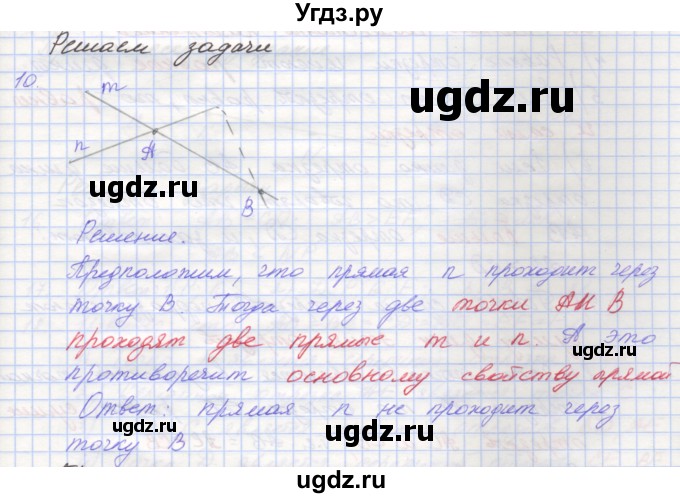 Угдз.ру
Решаем задачи
10.
m
ugdz.ru
n
A
ugdz.ru
B
ugdz.ru
Решение.
Предположим, что прямая n проходит через
точку B. Тогда через две точки A и B
проходят две прямые m и n. А это
противоречит основному свойству прямой
Ответ: прямая n не проходит через
точку B
ugdz.ru
ugdz.ru